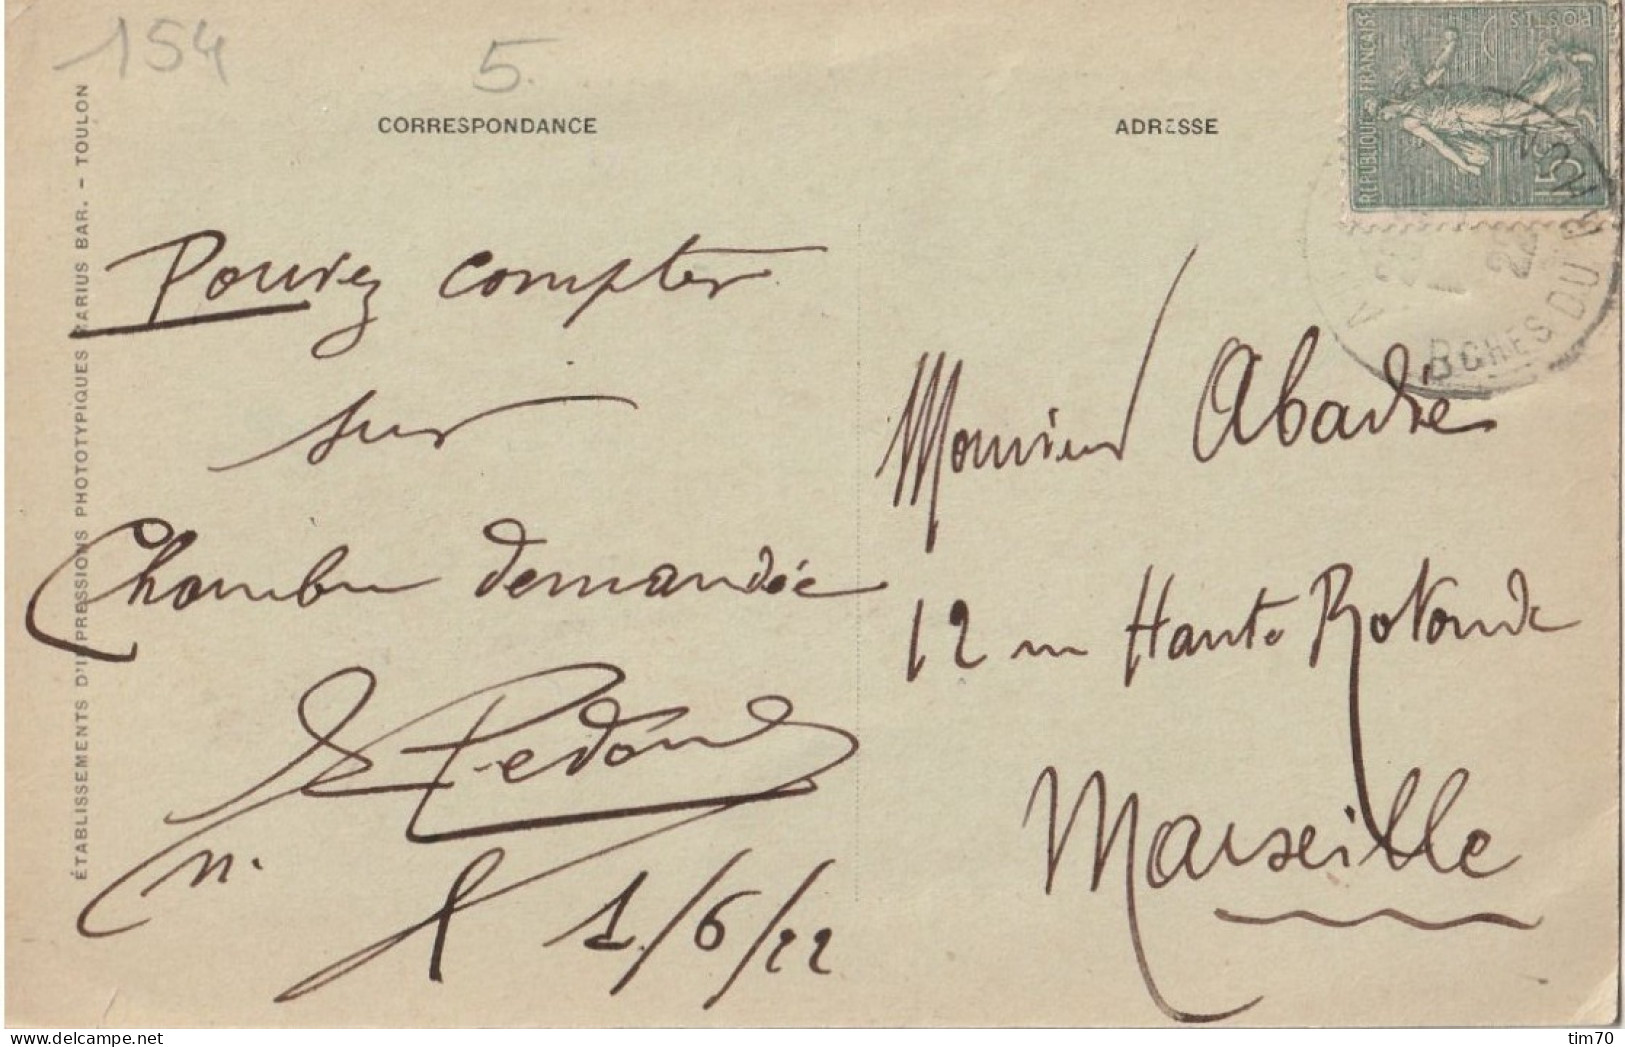 154
5.
CORRESPONDANCE
ADRESSE
RÉPUBLIQUE FRANÇAISE
POSTES
15c
22
BCHES DU R
ÉTABLISSEMENTS D'IMPRESSIONS PHOTOTYPIQUES MARIUS BAR. - TOULON
Pouvez compter
sur
Chambre demandée
n.
1/6/22
Monsieur Abadie
12 rue Haute Rotonde
Marseille
tim70